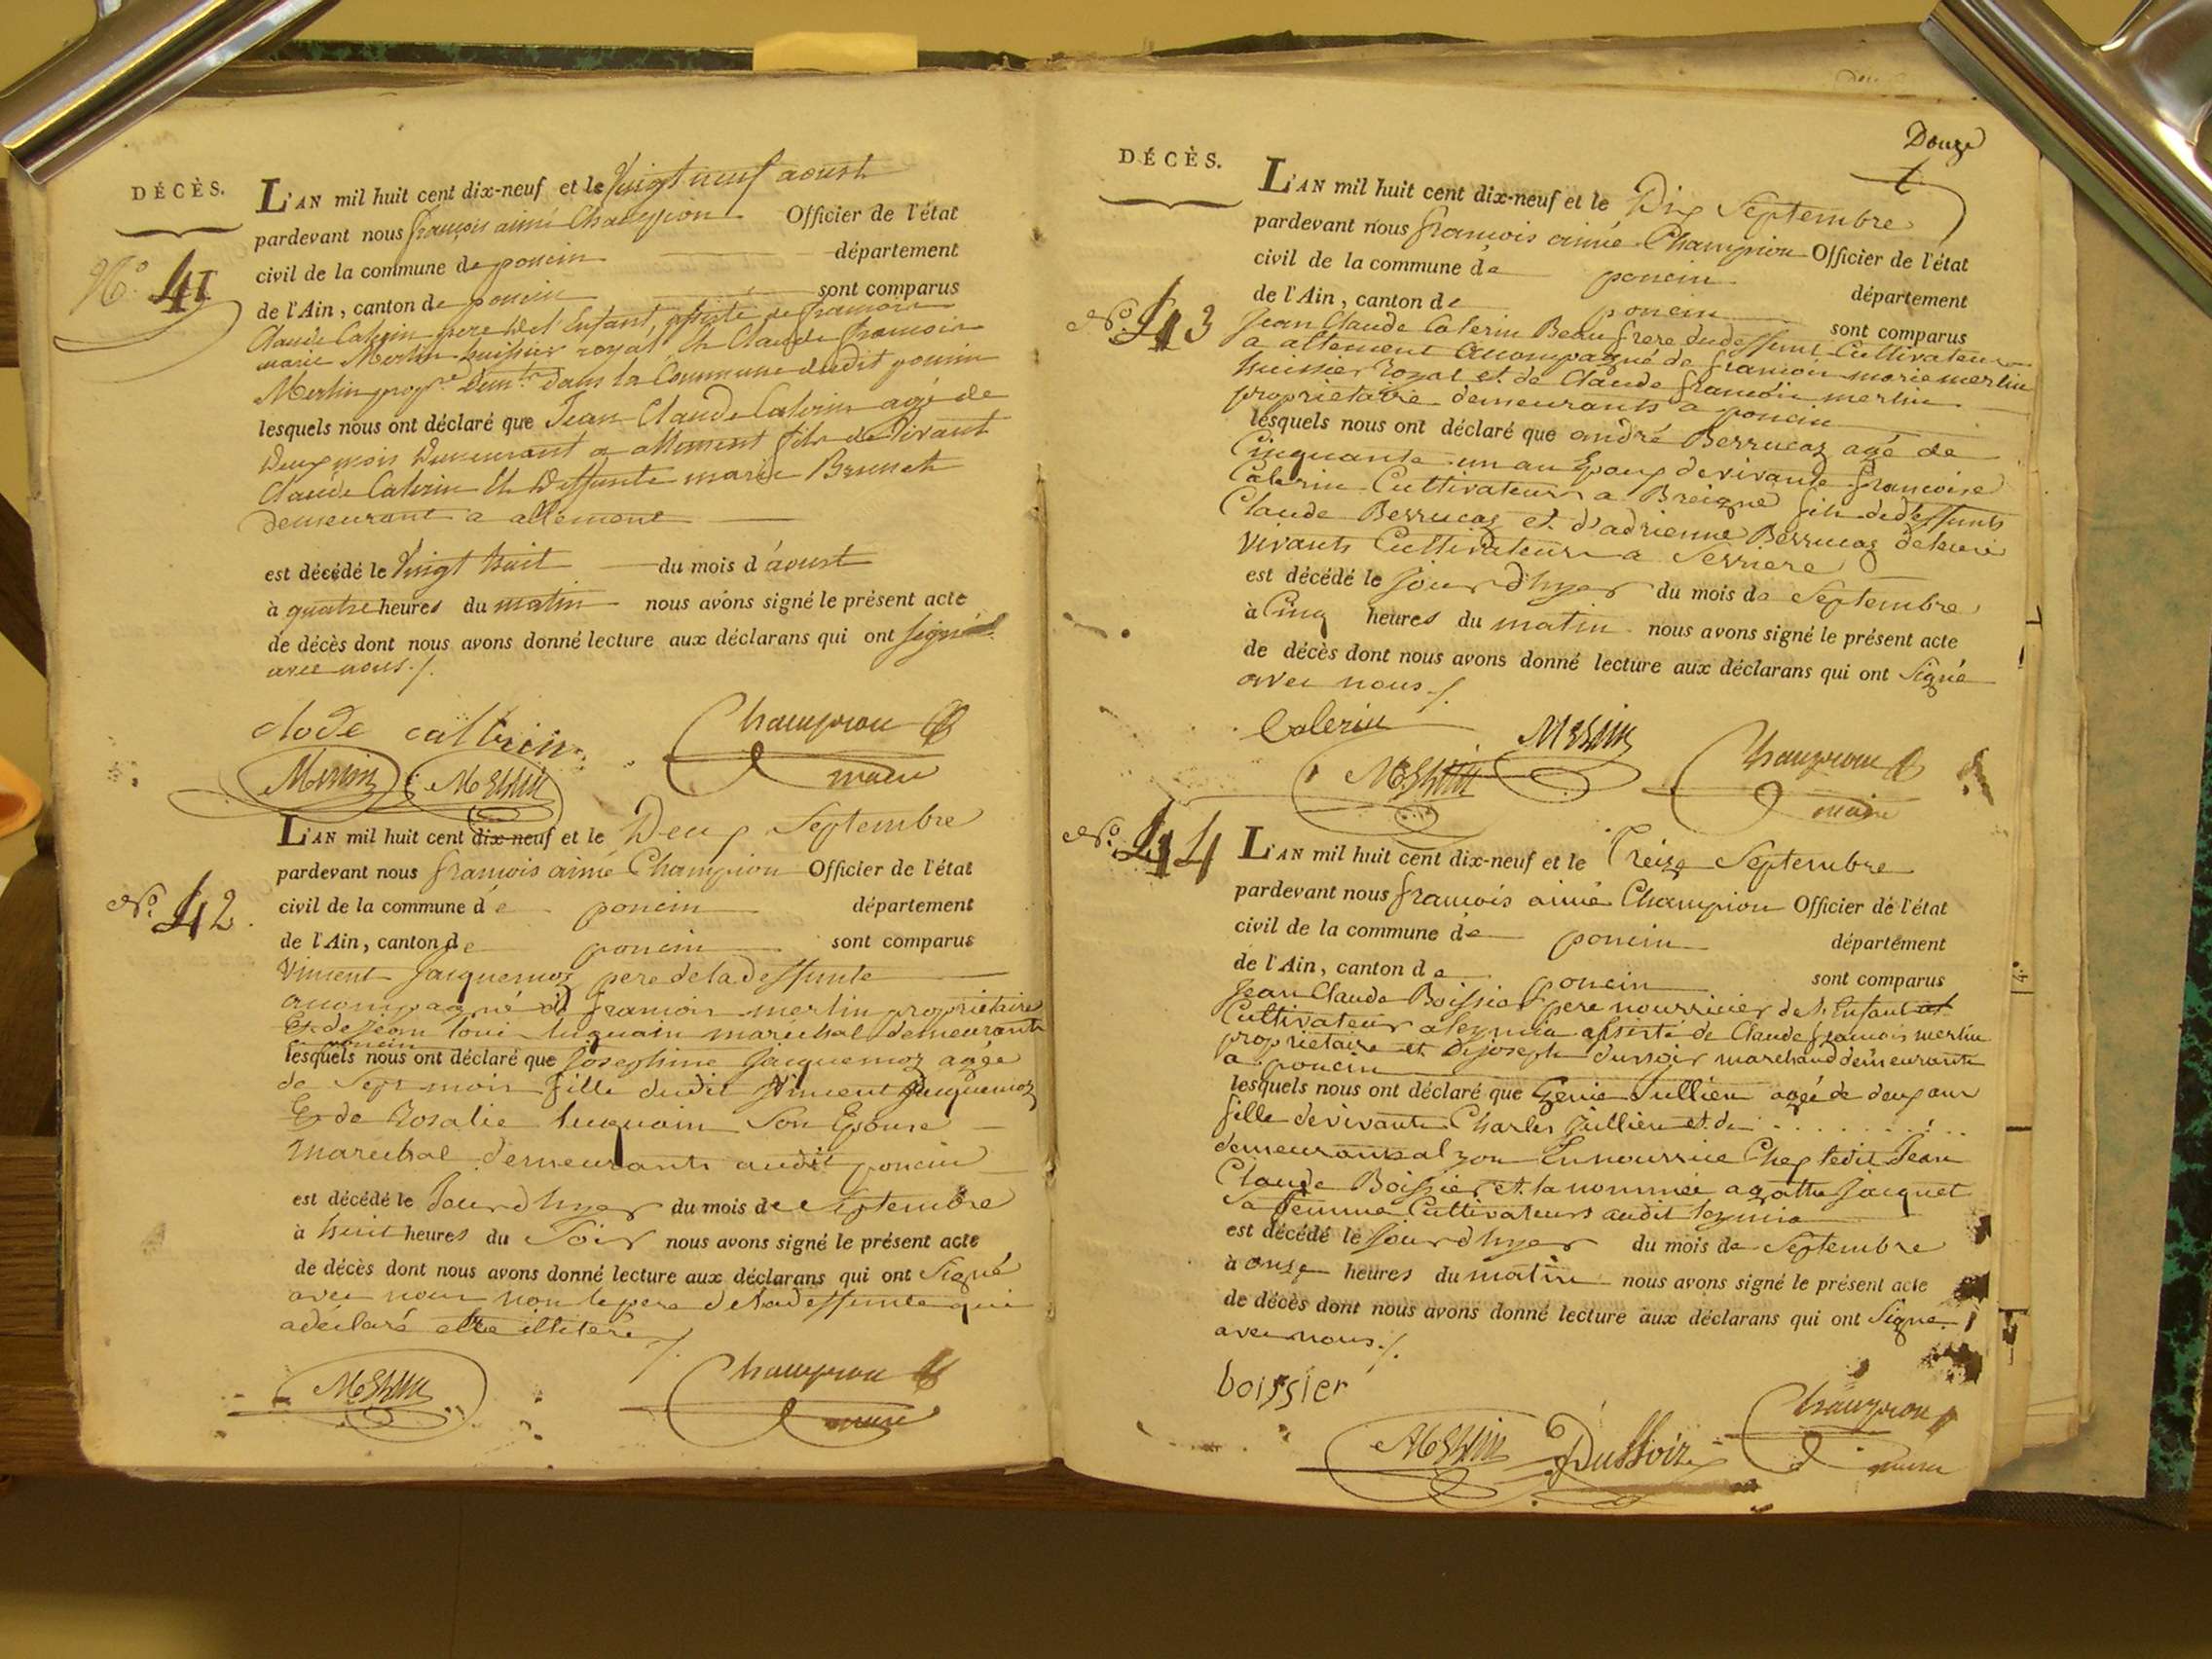 DÉCÈS.
N.° 41
L'AN mil huit cent dix-neuf et le Vingt neuf aoust
pardevant nous françois aimé Champion Officier de l'état
civil de la commune de poncin département
de l'Ain, canton de poncin sont comparus
Claude Caterin pere del Enfant, assisté de francois
marie Merlin huissier royal, Et Claude francois
Merlin prop.re Dem.ts dans la Commune dudit poncin
lesquels nous ont déclaré que Jean Claude Caterin agé de
Deux mois Demeurant a allement fils de Vivant
Claude Caterin Et Deffunte marie Brunet
demeurant a allement
est décédé le Vingt huit du mois d'aoust
à quatre heures du matin nous avons signé le présent acte
de décès dont nous avons donné lecture aux déclarans qui ont signés
avec nous ./.
clode catherin Champion
Merlin Merlin maire
N.° 42.
L'AN mil huit cent dix-neuf et le Deux Septembre
pardevant nous francois aimé Champion Officier de l'état
civil de la commune de poncin département
de l'Ain, canton de poncin sont comparus
Vincent Jacquemoz pere deladeffunte
acompagné de francois merlin propriétaire
Et de Jean Loui luquain maréchal demeurants
a poncin
lesquels nous ont déclaré que Josephine Jacquemoz agée
de Sept mois fille dudit Vincent Jacquemoz
Et de Rosalie luquain Son Epouse
Marechal demeurants audit poncin
est décédé le Jourdhyer du mois de Septembre
à huit heures du Soir nous avons signé le présent acte
de décès dont nous avons donné lecture aux déclarans qui ont Signé
avec nous non lepere deladeffunte qui
adéclaré etre illiteré ./.
Merlin Champion
maire
Douze
DÉCÈS.
N.° 43
L'AN mil huit cent dix-neuf et le Dix Septembre
pardevant nous francois aimé Champion Officier de l'état
civil de la commune de poncin département
de l'Ain, canton de poncin sont comparus
Jean Claude Caterin Beau frere dudeffunt Cultivateur
a allement acompagné de francois marie merlin
huissier Royal et de Claude francois merlin
propriétaire demeurants a poncin
lesquels nous ont déclaré que andré Berrucaz agé de
Cinquante un an Epoux devivante francoise
Caterin Cultivateur a Breigne fils dedeffunts
Claude Berrucaz et d'adrienne Berrucaz
Vivants Cultivateurs a Serriere
est décédé le jourdhyer du mois de Septembre
à Cinq heures du matin nous avons signé le présent acte
de décès dont nous avons donné lecture aux déclarans qui ont Signé
avec nous ./.
Caterin Merlin
Merlin Champion
maire
N.° 44
L'AN mil huit cent dix-neuf et le Treize Septembre
pardevant nous francois aimé Champion Officier de l'état
civil de la commune de poncin département
de l'Ain, canton de poncin sont comparus
Jean Claude Boissier pere nourricier del Enfant
Cultivateur a leymia assisté de Claude francois merlin
propriétaire et de joseph dussoir marchand demeurants
a poncin
lesquels nous ont déclaré que Genie Jullien agée de deux ans
fille devivants Charles Jullien et de . . . . . . . .
demeurants a lyon Ennourrice Chez ledit Jean
Claude Boissier et la nommée agathe Jacquet
Sa femme Cultivateurs audit leymia
est décédé le jourdhyer du mois de Septembre
à onze heures du matin nous avons signé le présent acte
de décès dont nous avons donné lecture aux déclarans qui ont Signé
avec nous ./.
boissier
Merlin Dussoir Champion
maire